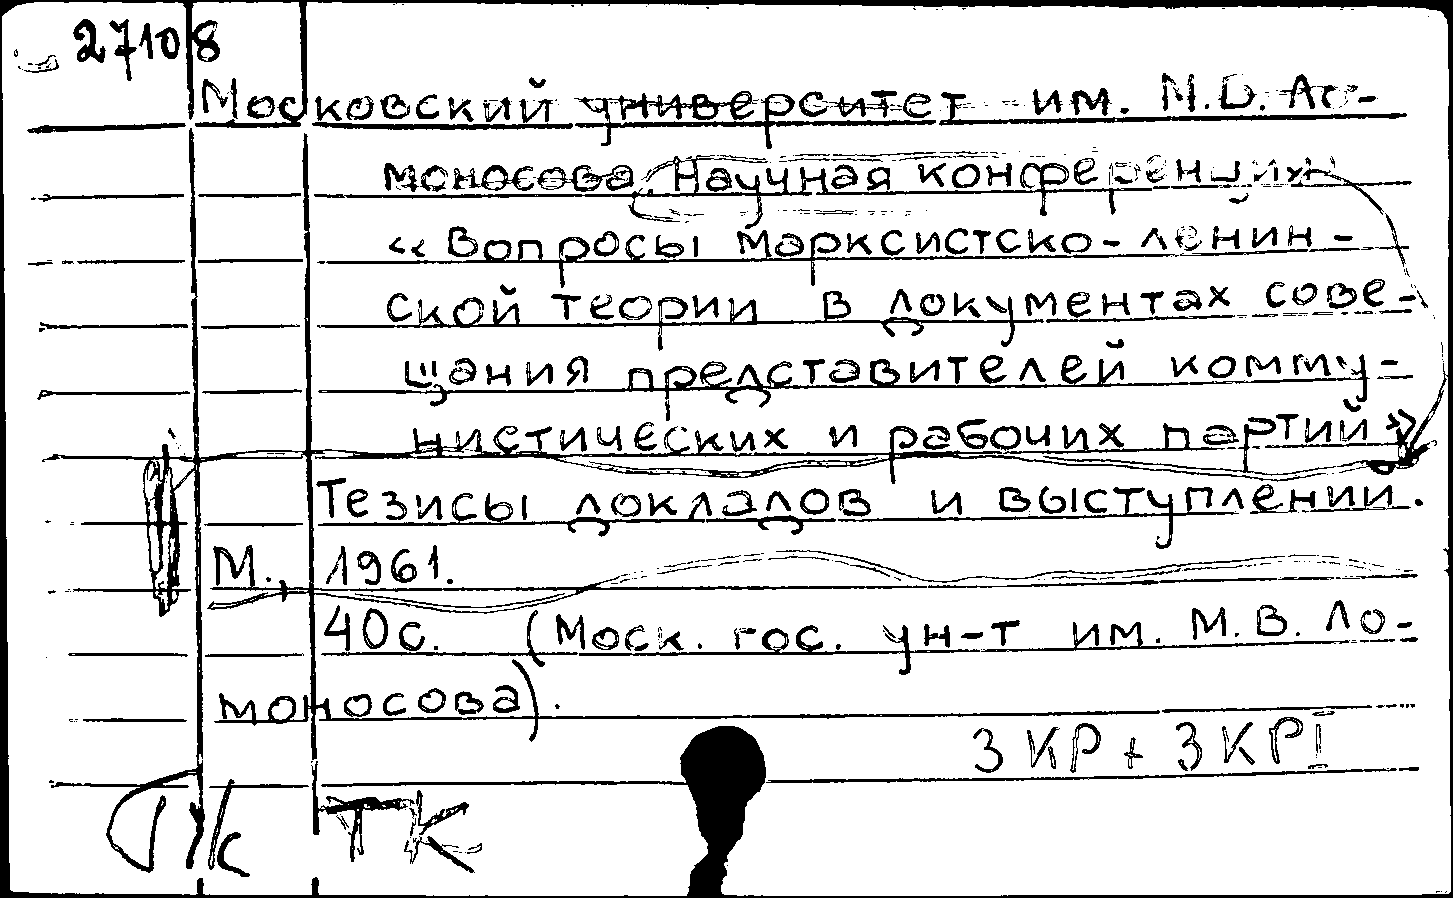 27108
Московский университет им. М.В. Ло-
моносова. Научная конференция
«Вопросы марксистско-ленин-
ской теории в документах сове-
щания представителей комму-
нистических и рабочих партий»
Тезисы докладов и выступлений.
М., 1961.
40с. (Моск. гос. ун-т им. М.В. Ло-
моносова).
3 КР + 3 КРІ
ТК ТК